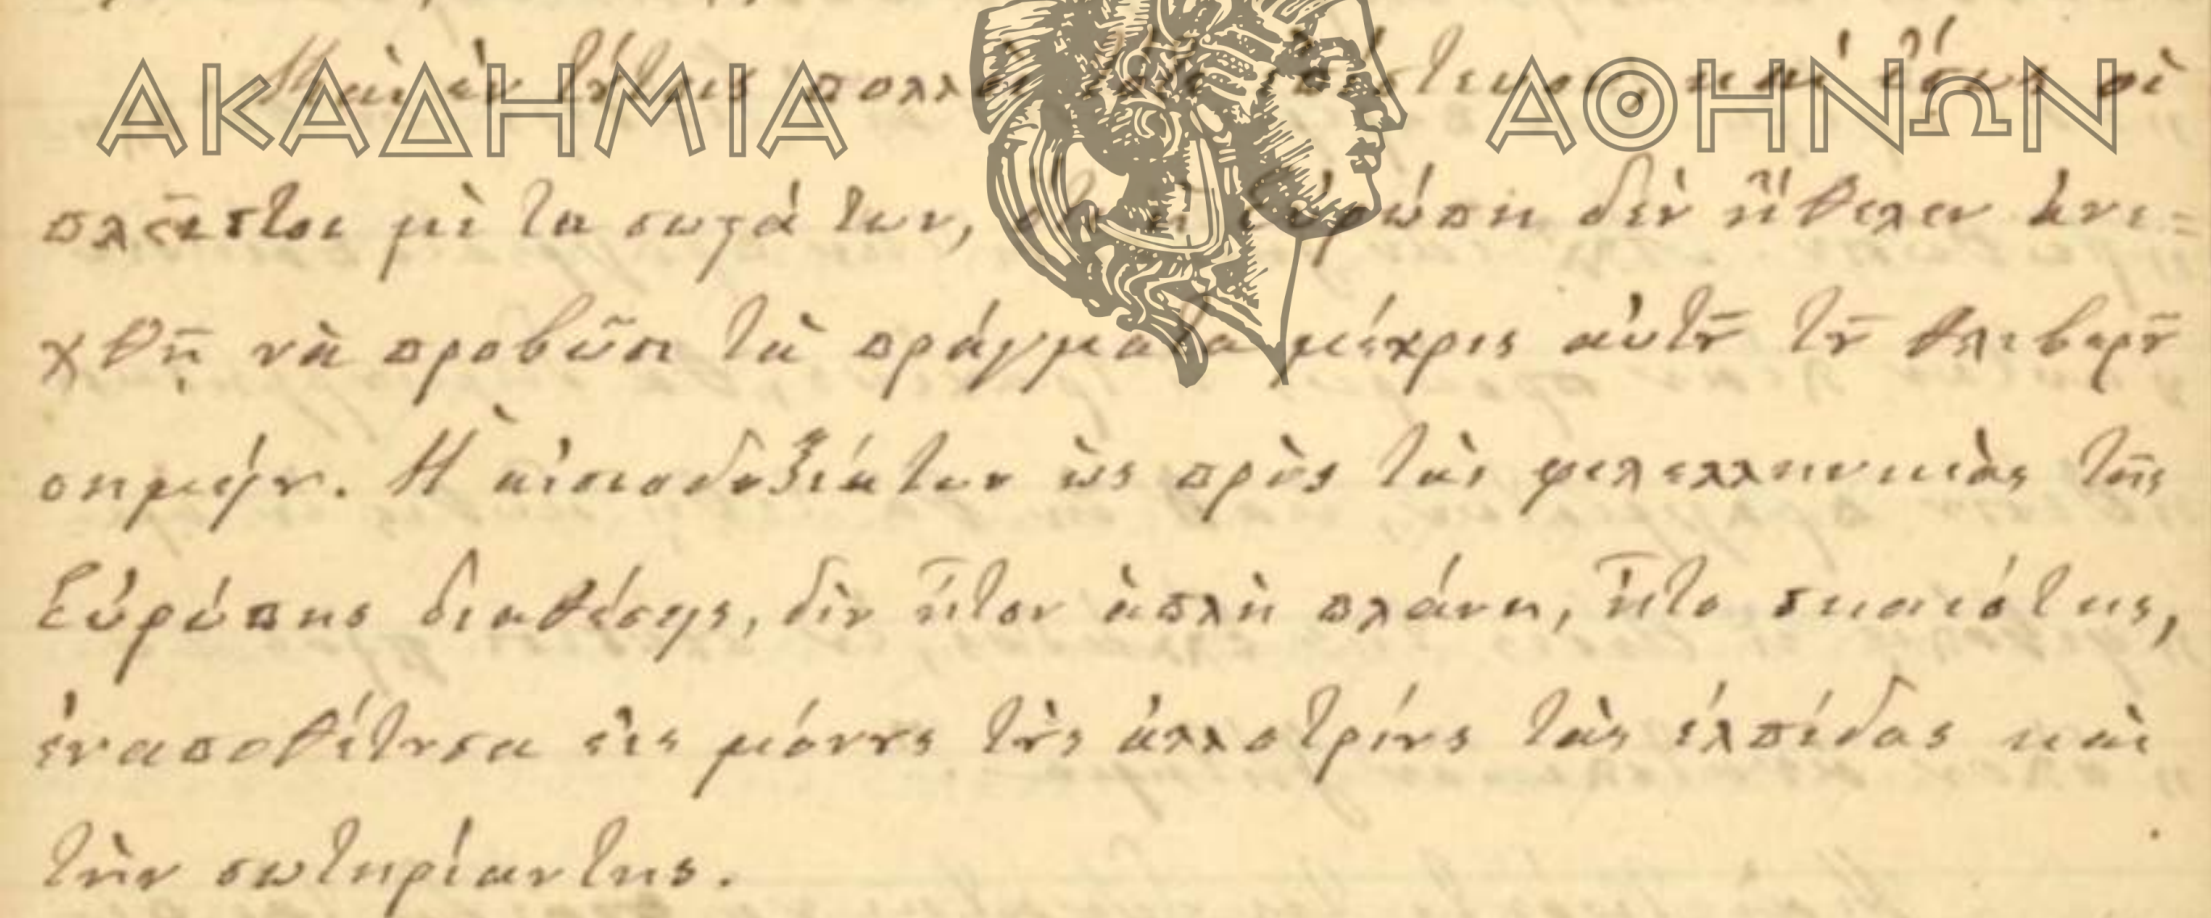 ΑΚΑΔΗΜΙΑ ΑΘΗΝΩΝ
πολλοὶ ἐπίστευον, καὶ ἴσως οἱ
πλεῖστοι μὲ τα σωστά των, ὅτι ἡ Εὐρώπη δὲν ἤθελεν ἀνε=
χθῇ νὰ προβῶσι τὰ πράγματα μέχρις αὐτοῦ τοῦ θλιβεροῦ
σημείου. Ἡ αἰσιοδοξία των ὡς πρὸς τὰς φιλελληνικὰς τῆς
Εὐρώπης διαθέσεις, δὲν ἦτον ἁπλῆ πλάνη, ἦτο σκαιότης,
ἐναποθέτουσα εἰς μόνους τοὺς ἀλλοτρίους τὰς ἐλπίδας καὶ
τὴν σωτηρίαν της.